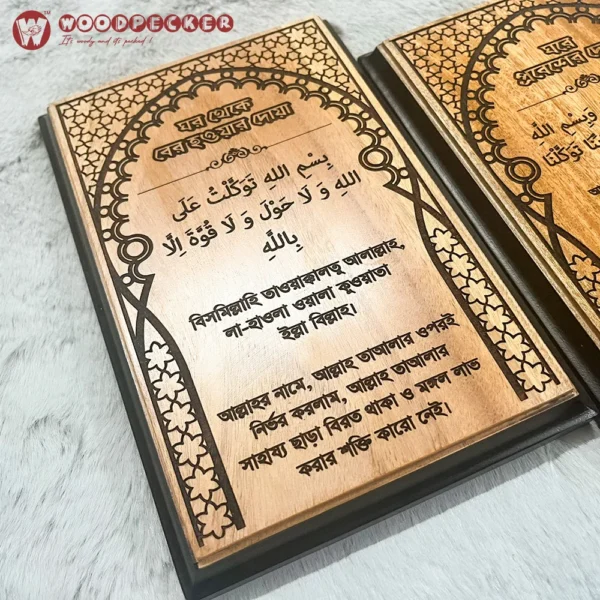 WOODPECKER
Its woody and its perked !
ঘর থেকে
বের হওয়ার দোয়া
بِسْمِ اللهِ تَوَكَّلْتُ عَلَى
اللهِ وَ لَا حَوْلَ وَ لَا قُوَّةَ اِلَّا
بِاللَّهِ
বিসমিল্লাহি তাওয়াক্কালতু আলাল্লাহ,
লা-হাওলা ওয়ালা ক্বূওয়াতা
ইল্লা বিল্লাহ।
আল্লাহর নামে, আল্লাহ তাআলার ওপরই
নির্ভর করলাম, আল্লাহ তাআলার
সাহায্য ছাড়া বিরত থাকা ও মঙ্গল লাভ
করার শক্তি কারো নেই।
ঘরে
প্রবেশের
وَبِسْمِ اللهِ
تَوَكَّلْنَا